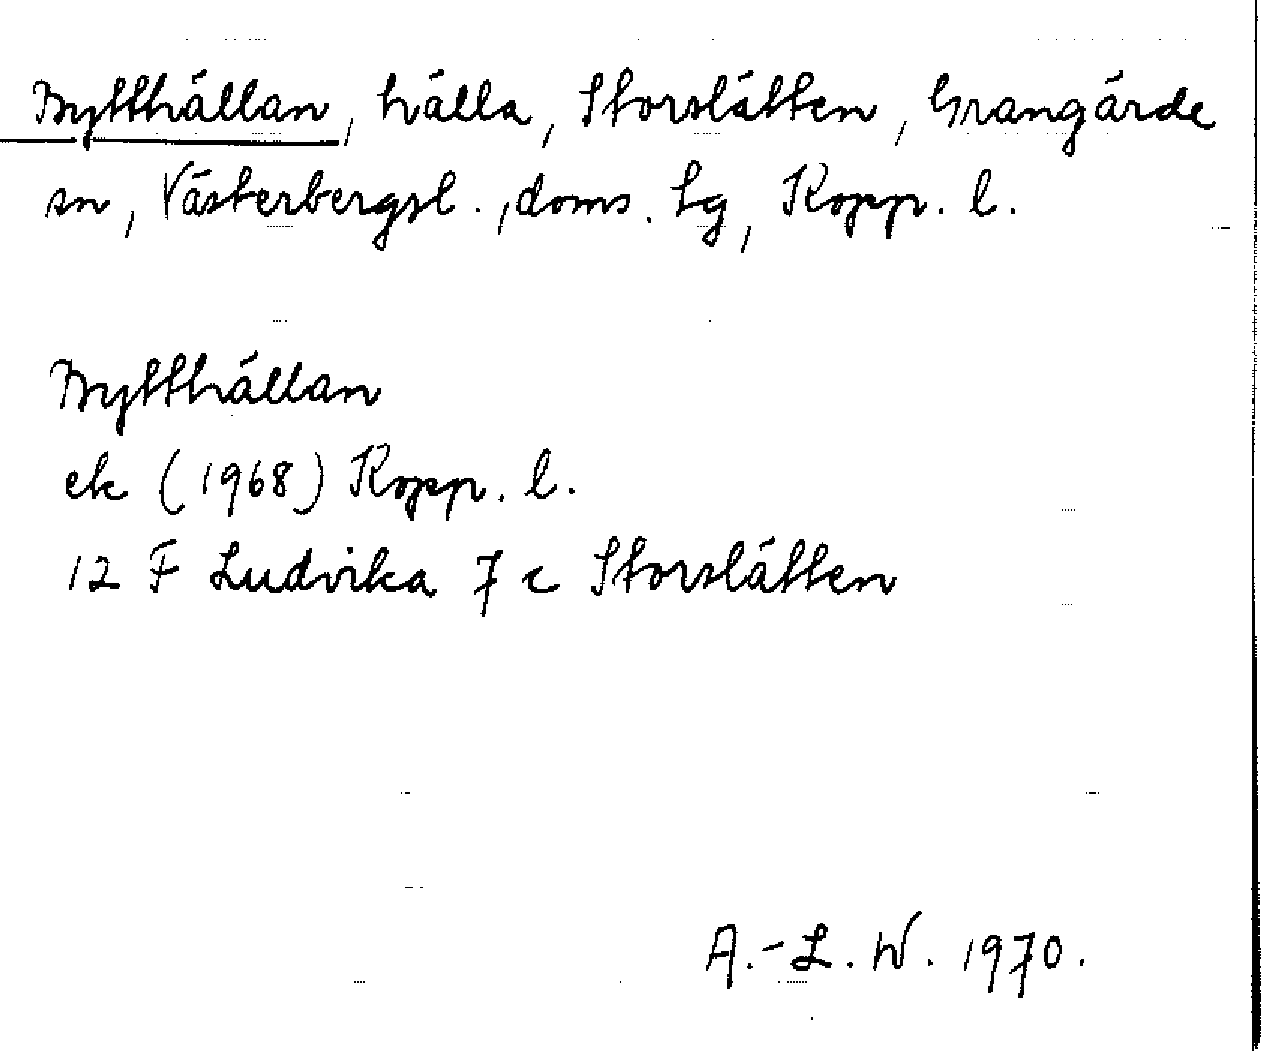 Bytthällan, hälla, Storslätten, Grangärde
sn, Västerbergsl., doms. hg, Kopp. l.
Bytthällan
ek (1968) Kopp. l.
12 F Ludvika 7 c Storslätten
A.-L. W. 1970.